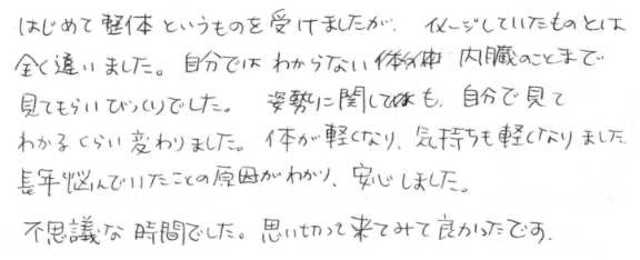 はじめて整体というものを受けましたが、イメージしていたものとは
全く違いました。自分ではわからない体の神 内臓のことまで
見てもらいびっくりでした。 姿勢に関しても、自分で見て
わかるくらい変わりました。体が軽くなり、気持ちも軽くなりました
長年悩んでいたことの原因がわかり、安心しました。
不思議な時間でした。思い切って来てみて良かったです。